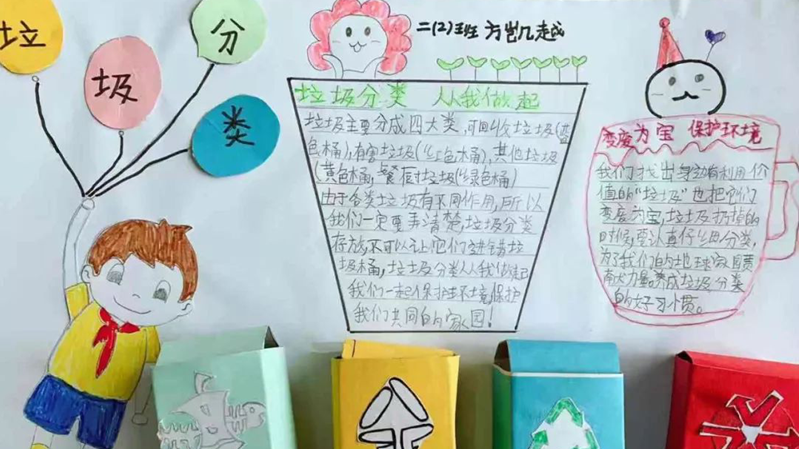 垃
圾
分
类
二(2)班 方凯越
垃圾分类 从我做起
垃圾主要分成四大类,可回收垃圾(蓝
色桶),有害垃圾(红色桶),其他垃圾
(黄色桶,餐厨垃圾(绿色桶)
由于各类垃圾有不同作用,所以
我们一定要弄清楚垃圾分类
存放,不可以让它们进错垃
圾桶,垃圾分类从我做起
我们一起保护环境保护
我们共同的家园!
变废为宝 保护环境
我们才找出身边有利用价
值的“垃圾”也把它们
变废为宝,垃圾扔掉的
时候,要认真仔细分类,
为我们的地球家园贡
献力量养成垃圾分类
的好习惯。